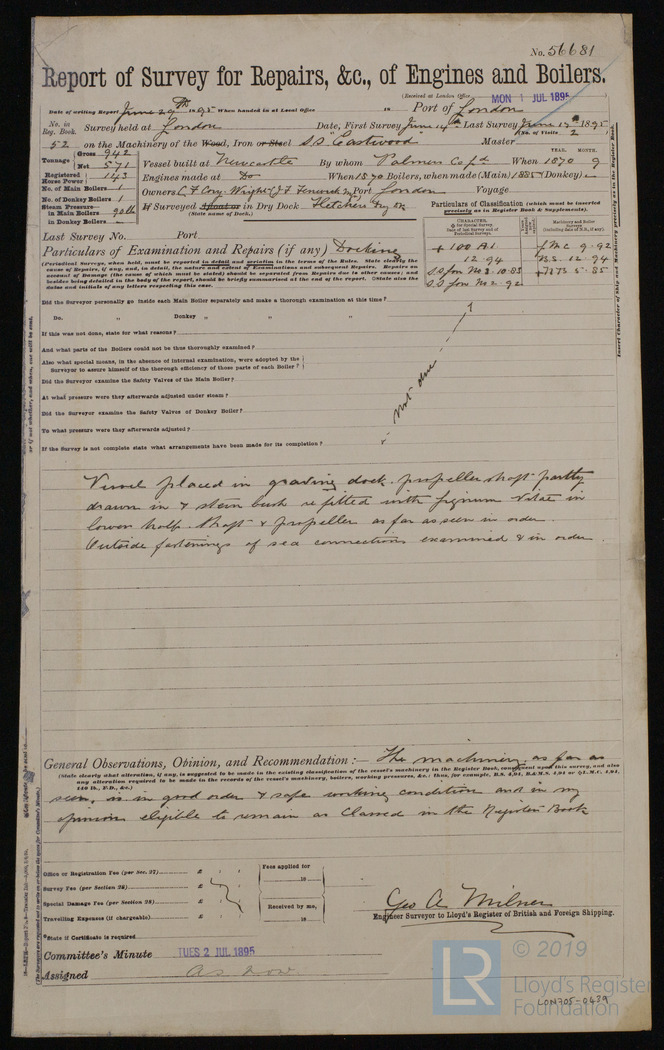 No. 56681
Report of Survey for Repairs, &c., of Engines and Boilers.
(Received at London Office MON 1 JUL 1895
Date of writing Report June 29th 1895 When handed in at Local Office 18 Port of London
No. in Reg. Book. Survey held at London Date, First Survey June 14th Last Survey June 17th 1895
(No. of Visits 2
52 on the Machinery of the Wood, Iron or Steel S.S. "Eastwood" Master
Tonnage Gross 942 Net 571
Vessel built at Newcastle By whom Palmers Co Ld When 1870 9
YEAR. MONTH.
Registered Horse Power 143
Engines made at Do When 1870 Boilers, when made (Main) 1885 (Donkey)
No. of Main Boilers 1
No. of Donkey Boilers 1
Owners Port London Voyage
Steam Pressure in Main Boilers 90 lb
in Donkey Boilers
If Surveyed Afloat or in Dry Dock Fletcher Dry Dk
(State name of Dock.)
Particulars of Classification (which must be inserted precisely as in Register Book & Supplements).
Last Survey No. Port
Particulars of Examination and Repairs (if any) Docking
(Periodical Surveys, when held, must be reported in detail and seriatim in the terms of the Rules. State clearly the
cause of Repairs, if any, and, in detail, the nature and extent of Examinations and subsequent Repairs. Repairs on
account of Damage (the cause of which must be stated) should be separated from Repairs due to other causes; and
besides being detailed in the body of the report, should be briefly summarised at the end of the report. State also the
dates and initials of any letters respecting this case.
CHARACTER.
Machinery and Boiler Surveys
+ 100 A1 L.M.C. 9.92
12.94 B.S. 12.94
S.S. Lon No 3. 10.83 + N B 5.85
S.S. Lon No 2. 92
Did the Surveyor personally go inside each Main Boiler separately and make a thorough examination at this time?
Do. Donkey " " "
If this was not done, state for what reasons?
And what parts of the Boilers could not be thoroughly examined?
Also what special means, in the absence of internal examination, were adopted by the
Surveyor to assure himself of the thorough efficiency of those parts of each Boiler?
Did the Surveyor examine the Safety Valves of the Main Boiler?
At what pressure were they afterwards adjusted under steam?
Did the Surveyor examine the Safety Valves of Donkey Boiler?
To what pressure were they afterwards adjusted?
If the Survey is not complete state what arrangements have been made for its completion?
not done
Vessel placed in graving dock. propeller shaft partly
drawn in & stern bush refitted with lignum vitae in
lower half. Shaft & propeller as far as seen in order.
Outside fastenings of sea connections examined & in order.
General Observations, Opinion, and Recommendation:— The machinery, as far as
(State clearly what alteration, if any, is suggested to be made in the existing classification of the vessel's machinery in the Register Book, consequent upon this survey, and also
any alteration required to be made in the records of the vessel's machinery, boilers, working pressures, &c.: thus, for example, B.S. 4,94, B.&M.S. 4,94 or L.M.C. 4,94,
140 lb., F.D., &c.)
seen, is in good order & safe working condition and in my
opinion eligible to remain as Classed in the Register Book
Office or Registration Fee (per Sec. 27) £
Survey Fee (per Section 28) £
Special Damage Fee (per Section 28) £
Travelling Expenses (if chargeable) £
Fees applied for
18
Received by me,
18
Geo A. Milner
Engineer Surveyor to Lloyd's Register of British and Foreign Shipping.
*State if Certificate is required
Committee's Minute TUES 2 JUL 1895
Assigned As now
© 2019
LR
Lloyd's Register
Foundation
LON705-0439